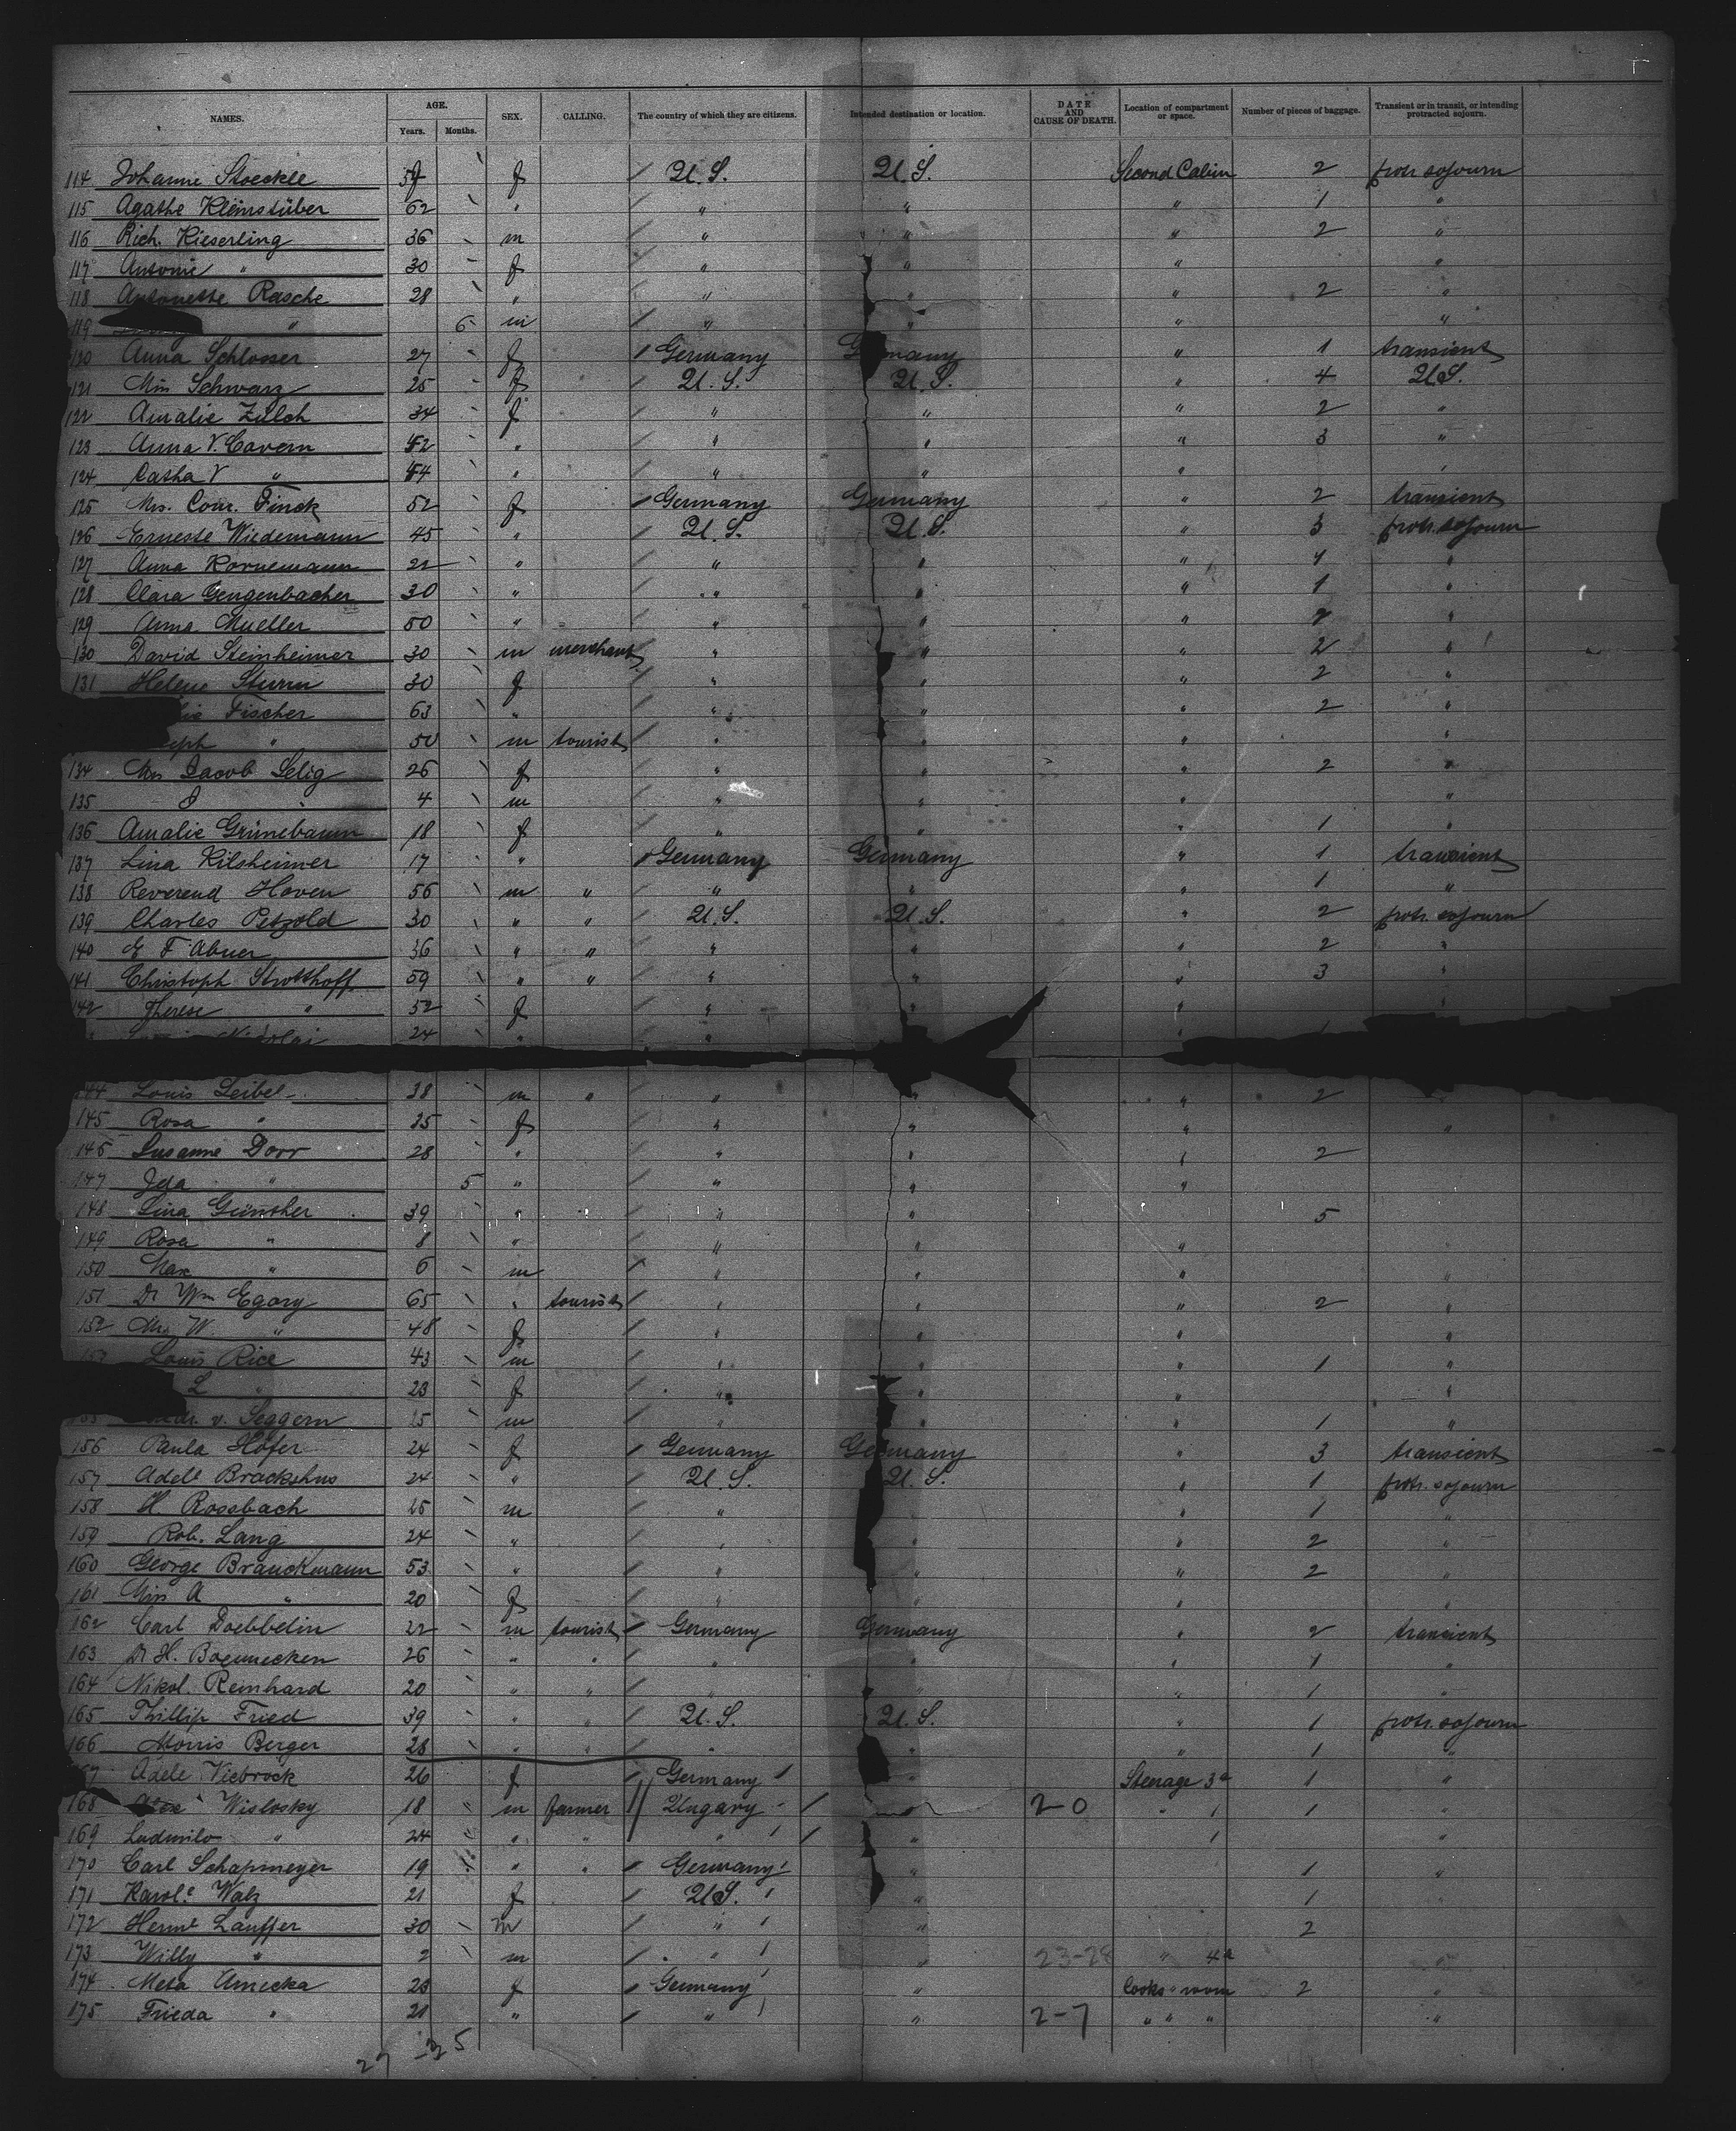 NAMES. AGE. Years. Months. SEX. CALLING. The country of which they are citizens. Intended destination or location. DATE AND CAUSE OF DEATH. Location of compartment or space. Number of pieces of baggage. Transient or in transit, or intending protracted sojourn.
114 Johanne Stoeckle f U.S. U.S. Second Cabin 2 protr. sojourn
115 Agathe Kleinstüber 62 " " " " 1 "
116 Rich. Kieserling 36 m " " " 2 "
117 Antonie " 30 f " " " "
118 Antonette Rasche 28 " " " " 2 "
119 " 6 m " " " "
120 Anna Schlosser 27 f Germany Germany " 1 transient
121 Min Schwarz 25 f U.S. U.S. " 4 U.S.
122 Amalie Zülch 34 f " " " 2 "
123 Anna V. Cavern 42 " " " " 3 "
124 Casha V " 44 " " " " "
125 Mrs. Conr. Finck 52 f Germany Germany " 2 transient
126 Erneste Wiedemann 45 " U.S. U.S. " 3 protr. sojourn
127 Anna Kornemann 22 " " " " "
128 Clara Gengenbacher 30 " " " " 1 "
129 Anna Mueller 50 " " " " 2 "
130 David Steinheimer 30 m merchant " " " 2 "
131 Helene Sturm 30 f " " " 2 "
Fischer 63 " " " " 2 "
" 50 m tourist " " " "
134 Mrs Jacob Selig 26 f " " " 2 "
135 " 4 m " " " "
136 Amalie Grünebaum 18 f " " " 1 "
137 Lina Hilsheimer 17 " Germany Germany " 1 transient
138 Reverend Hoven 56 m " " " " 1 "
139 Charles Petzold 30 " " U.S. U.S. " 2 protr. sojourn
140 E F Abner 36 " " " " " 2 "
141 Christoph Strotthoff 59 " " " " " 3 "
142 Therese " 52 f " " "
24 " " "
144 Louis Leibel 38 m " " " " 2
145 Rosa " 35 f " " " "
146 Susanne Dorr 28 " " " " 2
147 Ida " 5 " " " "
148 Lina Günther 39 " " " 5
149 Rosa " 8 " " " "
150 Max " 6 m " " " "
151 Dr Wm Egory 65 " tourist " " " 2 "
152 Mrs W. " 48 f " " " "
153 Louis Rice 43 m " " " 1 "
L " 23 f " " " "
155 v. Seggern m " " " 1 "
156 Paula Höfer 24 f Germany Germany " 3 transient
157 Adele Brackshus 24 " U.S. U.S. " 1 protr. sojourn
158 H. Rossbach 25 m " " " 1 "
159 Rob. Lang 24 " " " " 2 "
160 George Branckmann 53 " " " " 2 "
161 Miss A " 20 f " " " "
162 Carl Doebbelin 22 m tourist Germany Germany " 2 transient
163 Dr H. Boennecken 26 " " " " " 1 "
164 Nikol. Reinhard 20 " " " " " 1 "
165 Phillip Fried 39 " " U.S. U.S. " 1 protr. sojourn
166 Morris Berger 28 " " " " " 1 "
167 Adele Viebrock 26 f Germany " Steerage 3a 1 "
168 Wislosky 18 m farmer Ungary " 2-0 " 1 "
169 Ludmilo " 24 " " " " "
170 Carl Schapmeyer 19 " " Germany " 1 "
171 Karole Walz 21 f U.S. " 1
172 Herm. Lauffer 30 m " " 2
173 Willy " 2 m " " 23-28 " 4a "
174 Meta Amecka 23 f Germany " Cooks room 2 "
175 Frieda " 21 " " " 2-7 " " " "
27